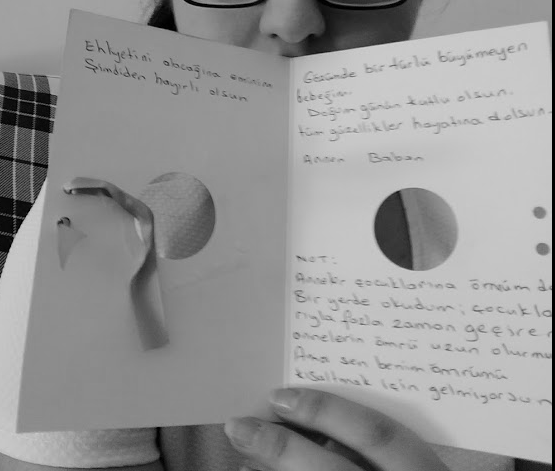 Ehliyetini alacağına eminim
Şimdiden hayırlı olsun
Gözünde bir türlü büyümeyen
bebeğim.
Doğum günün kutlu olsun.
tüm güzellikler hayatına dolsun.
Annen Baban
NOT:
Anneler çocuklarına ömrüm de
Bir yerde okudum; çocukla
rıyla fazla zaman geçiren
annelerin ömrü uzun olurmu
Ama sen benim ömrümü
kısaltmak için gelmiyorsun